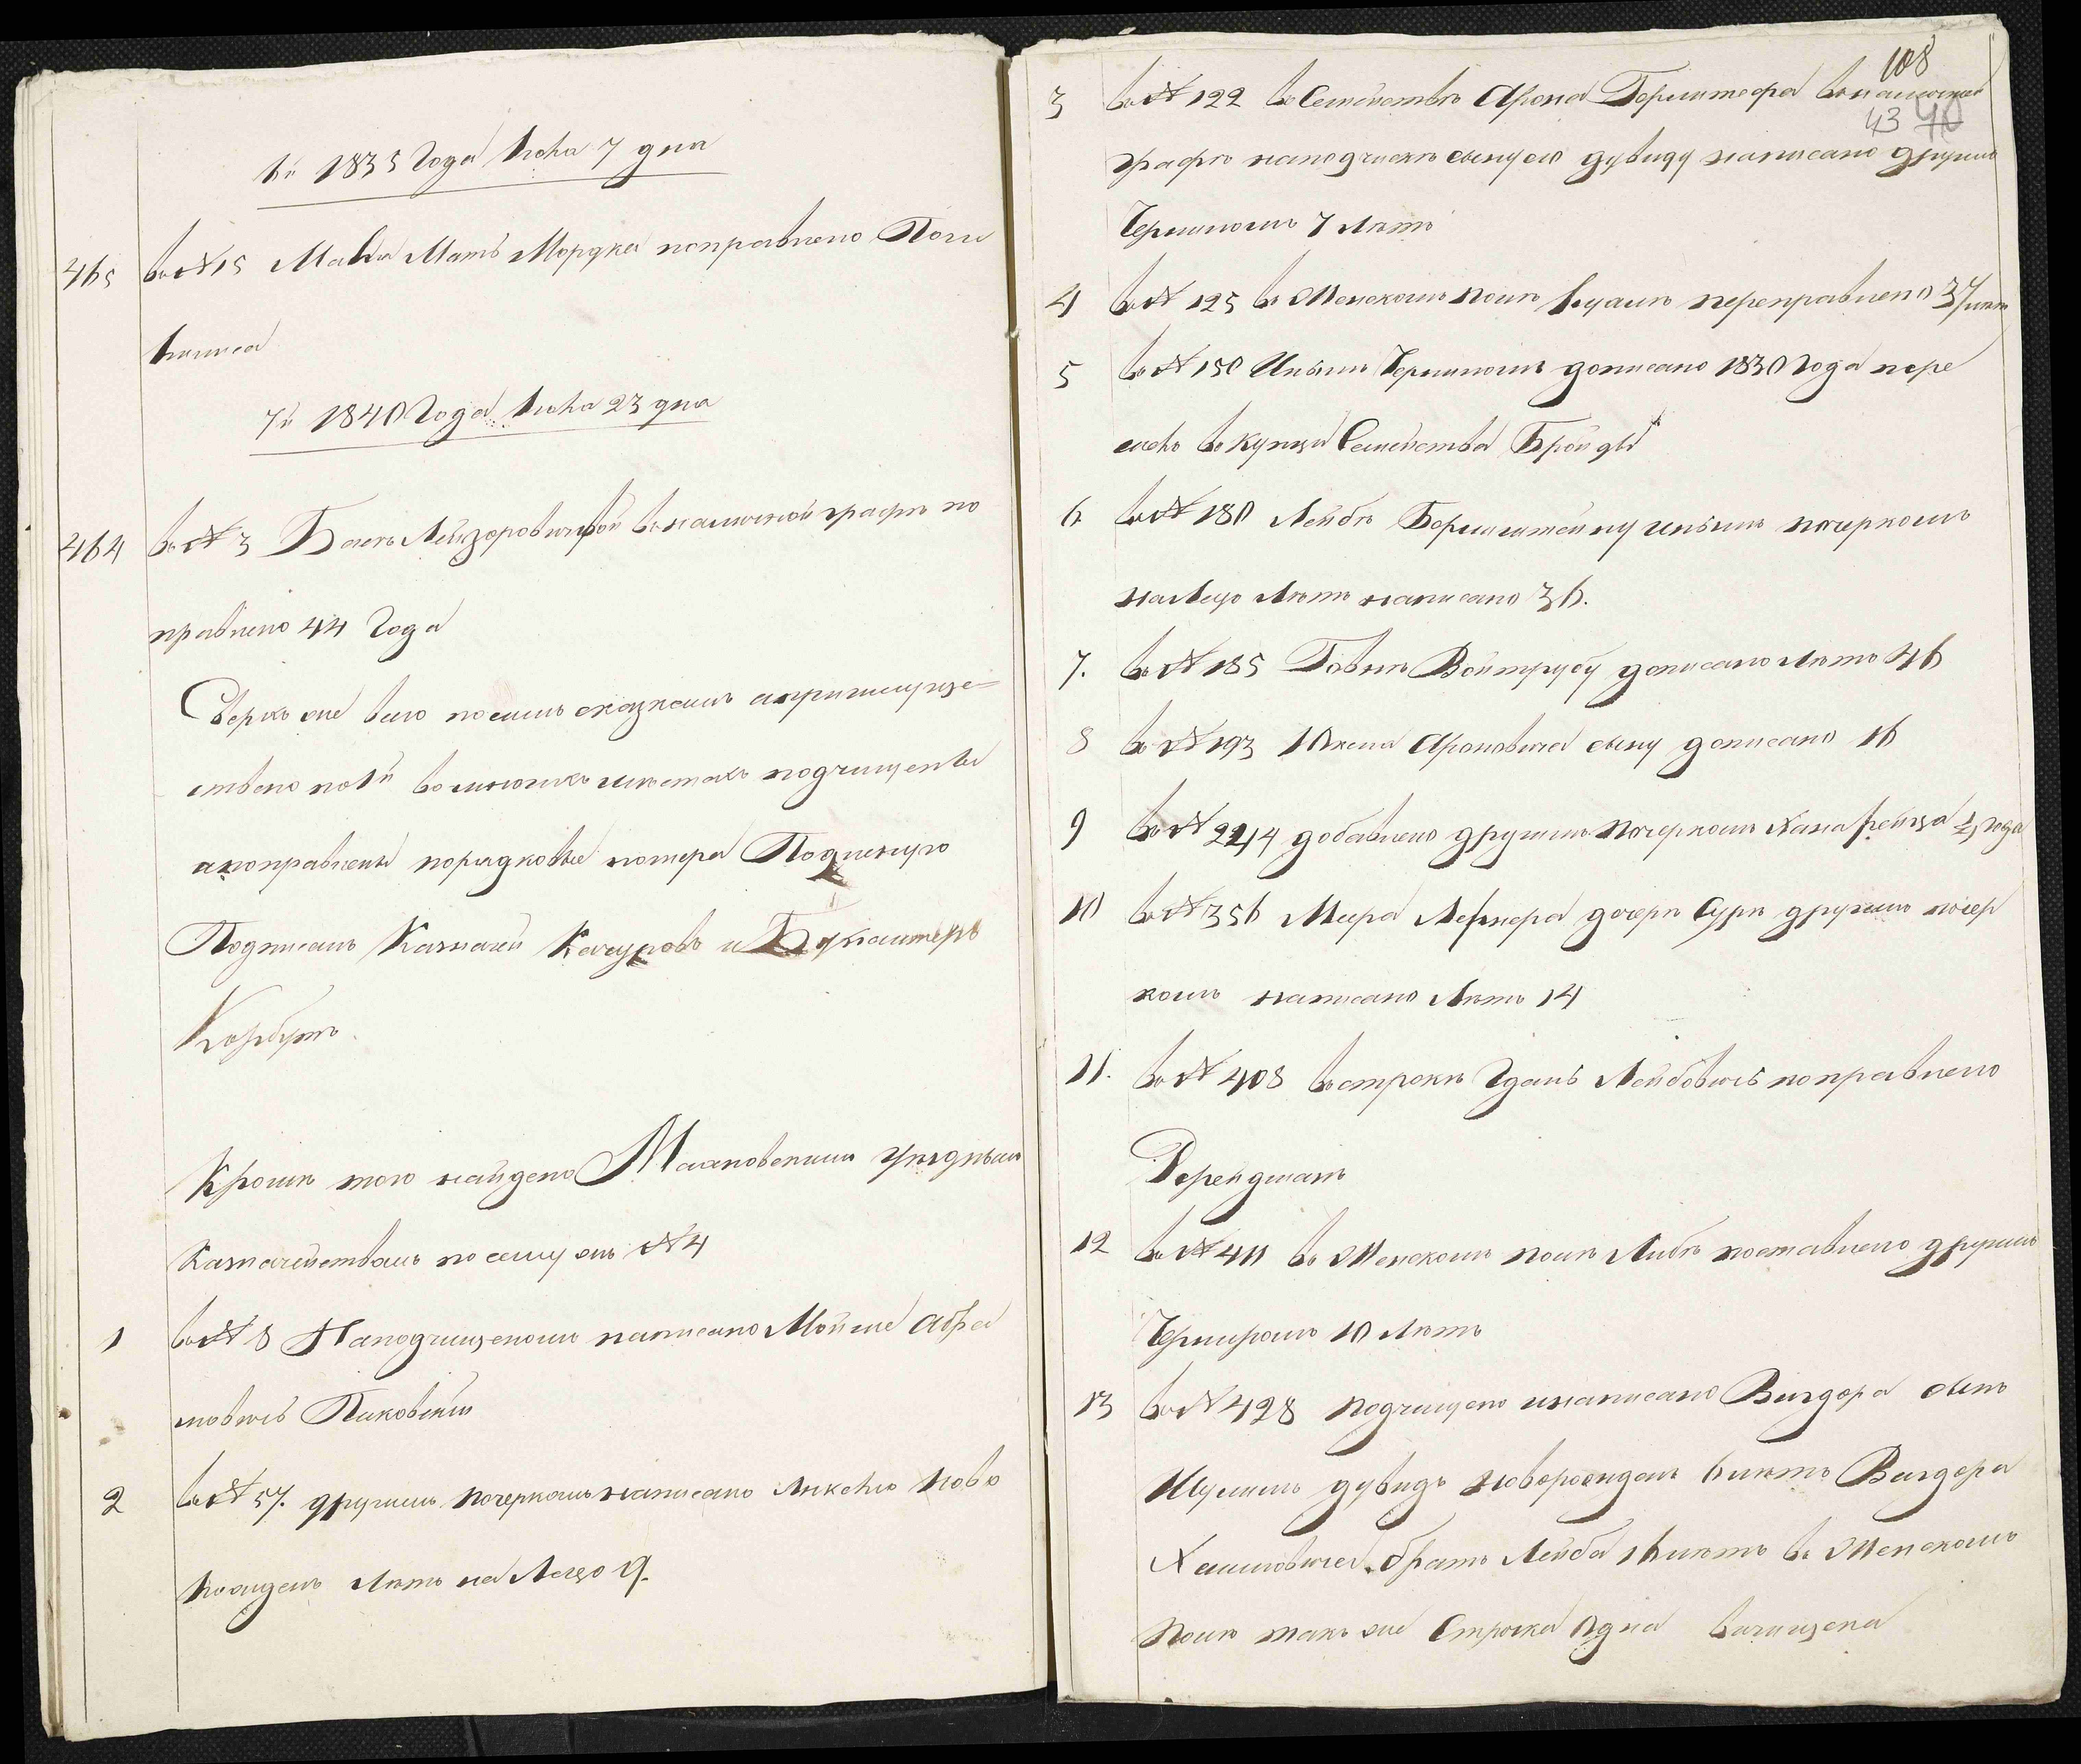 6й 1835 Года Июня 7 дня
465 въ № 15 Мавша Мать Мордка поправлено
7й 1840 Года Июня 23 дня
464 въ № 3 Баси Лейзоровичевой въ наличной графѣ по
правлено 44 Года
Сверхъ сие всего по симъ сказкамъ а преимуще=
ственно по 6й во многихъ местахъ подчищены
а поправлены порядковые номера Подлинную
Подписалъ Казначей Качуровъ и Бухгалтеръ
Корбутъ.
Кромѣ того найдено Махновскимъ Уѣзднымъ
Казначействомъ по сему же №4
1 въ № 8 На подчищеномъ написано Мойше Абра
мовичъ Паковскій
2 въ № 57. другимъ почеркомъ написано ново
рожденъ Лѣтъ на Лецо 9.
108
43 40
3 въ № 122 въ Семействѣ Арона въ наличной
графѣ на подчискѣ сыну его Дувиду написано другим
Чернилом 7 Лѣтъ
4 въ № 125 въ Женскомъ полѣ переправлено 37 лѣт
5 въ № 150 Иным Чернилом дописано 1830 Года пере
шелъ въ купцы Семейства Бройды
6. въ № 180 Лейбѣ Бормштейну иным почеркомъ
на Лецо Лѣтъ написано 36.
7. въ № 185 Говшѣ Войтрубу дописано Лѣтъ 46
8 въ № 193 Юкела Ароновича сыну дописано 16
9 въ № 2214 добавлено другимъ почеркомъ Хана Рейза ½ года
10 въ № 356 Меера Лернера дочери Сурѣ другим почер
комъ написано Лѣтъ 14
11. въ № 408 въ строкѣ Гдаль Лейбовичъ поправлено
12 въ № 411 въ Женскомъ полѣ Либѣ поставлено другим
Чернилом 10 Лѣтъ
13 въ № 428 подчищено и написано Вигдора сынъ
Шулимъ Дувидъ новорожденъ 6 лѣтъ Вигдора
Хаимовича братъ Лейба 16 лѣтъ въ Женскомъ
Полѣ такъ же Строка Одна вычищена